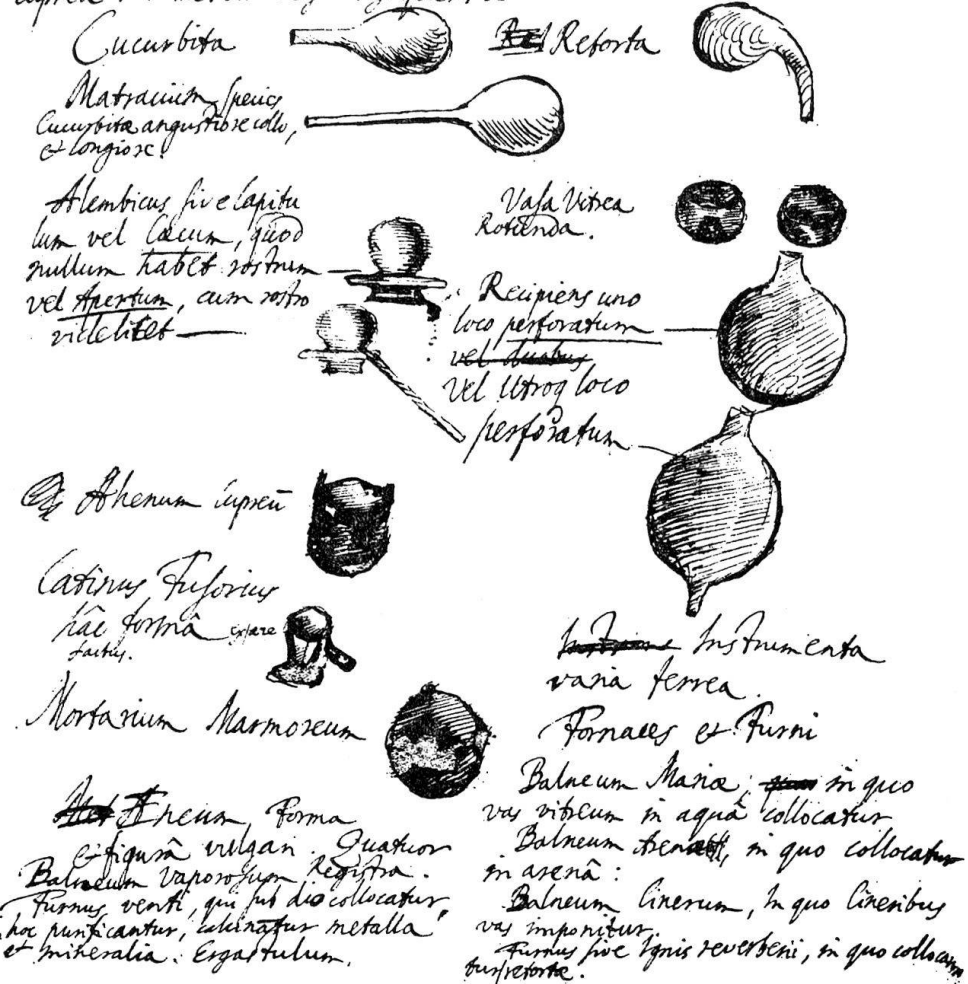 Cucurbita
Retorta
Matracium species
Cucurbitæ angustiore collo,
et longiore.
Alembicus sive Capitu
lum vel Cæcum, quod
nullum habet rostrum
vel Apertum, cum rostro
videlicet
Vasa Vitrea
Rotunda.
Recipiens uno
loco perforatum
vel duobus
vel Utroq loco
perforatum
Ahenum cupreū
Catinus Fusorius
hâc formâ
factus.
Mortarium Marmoreum
Instrumenta
varia ferrea.
Fornaces et Furni
Æneum, forma
et figurâ vulgari. Quatuor
Balneum vaporosum Registra.
Furnus venti, qui sub dio collocatur,
hoc purificantur, metalla
et mineralia. Ergastulum.
Balneum Mariæ, in quo
vas vitreum in aquâ collocatur
Balneum Arenæ, in quo collocatur
in arenâ:
Balneum Cinerum, In quo Cineribus
vas imponitur.
Furnus sive Ignis reverberii, in quo collocan
tur retortæ.